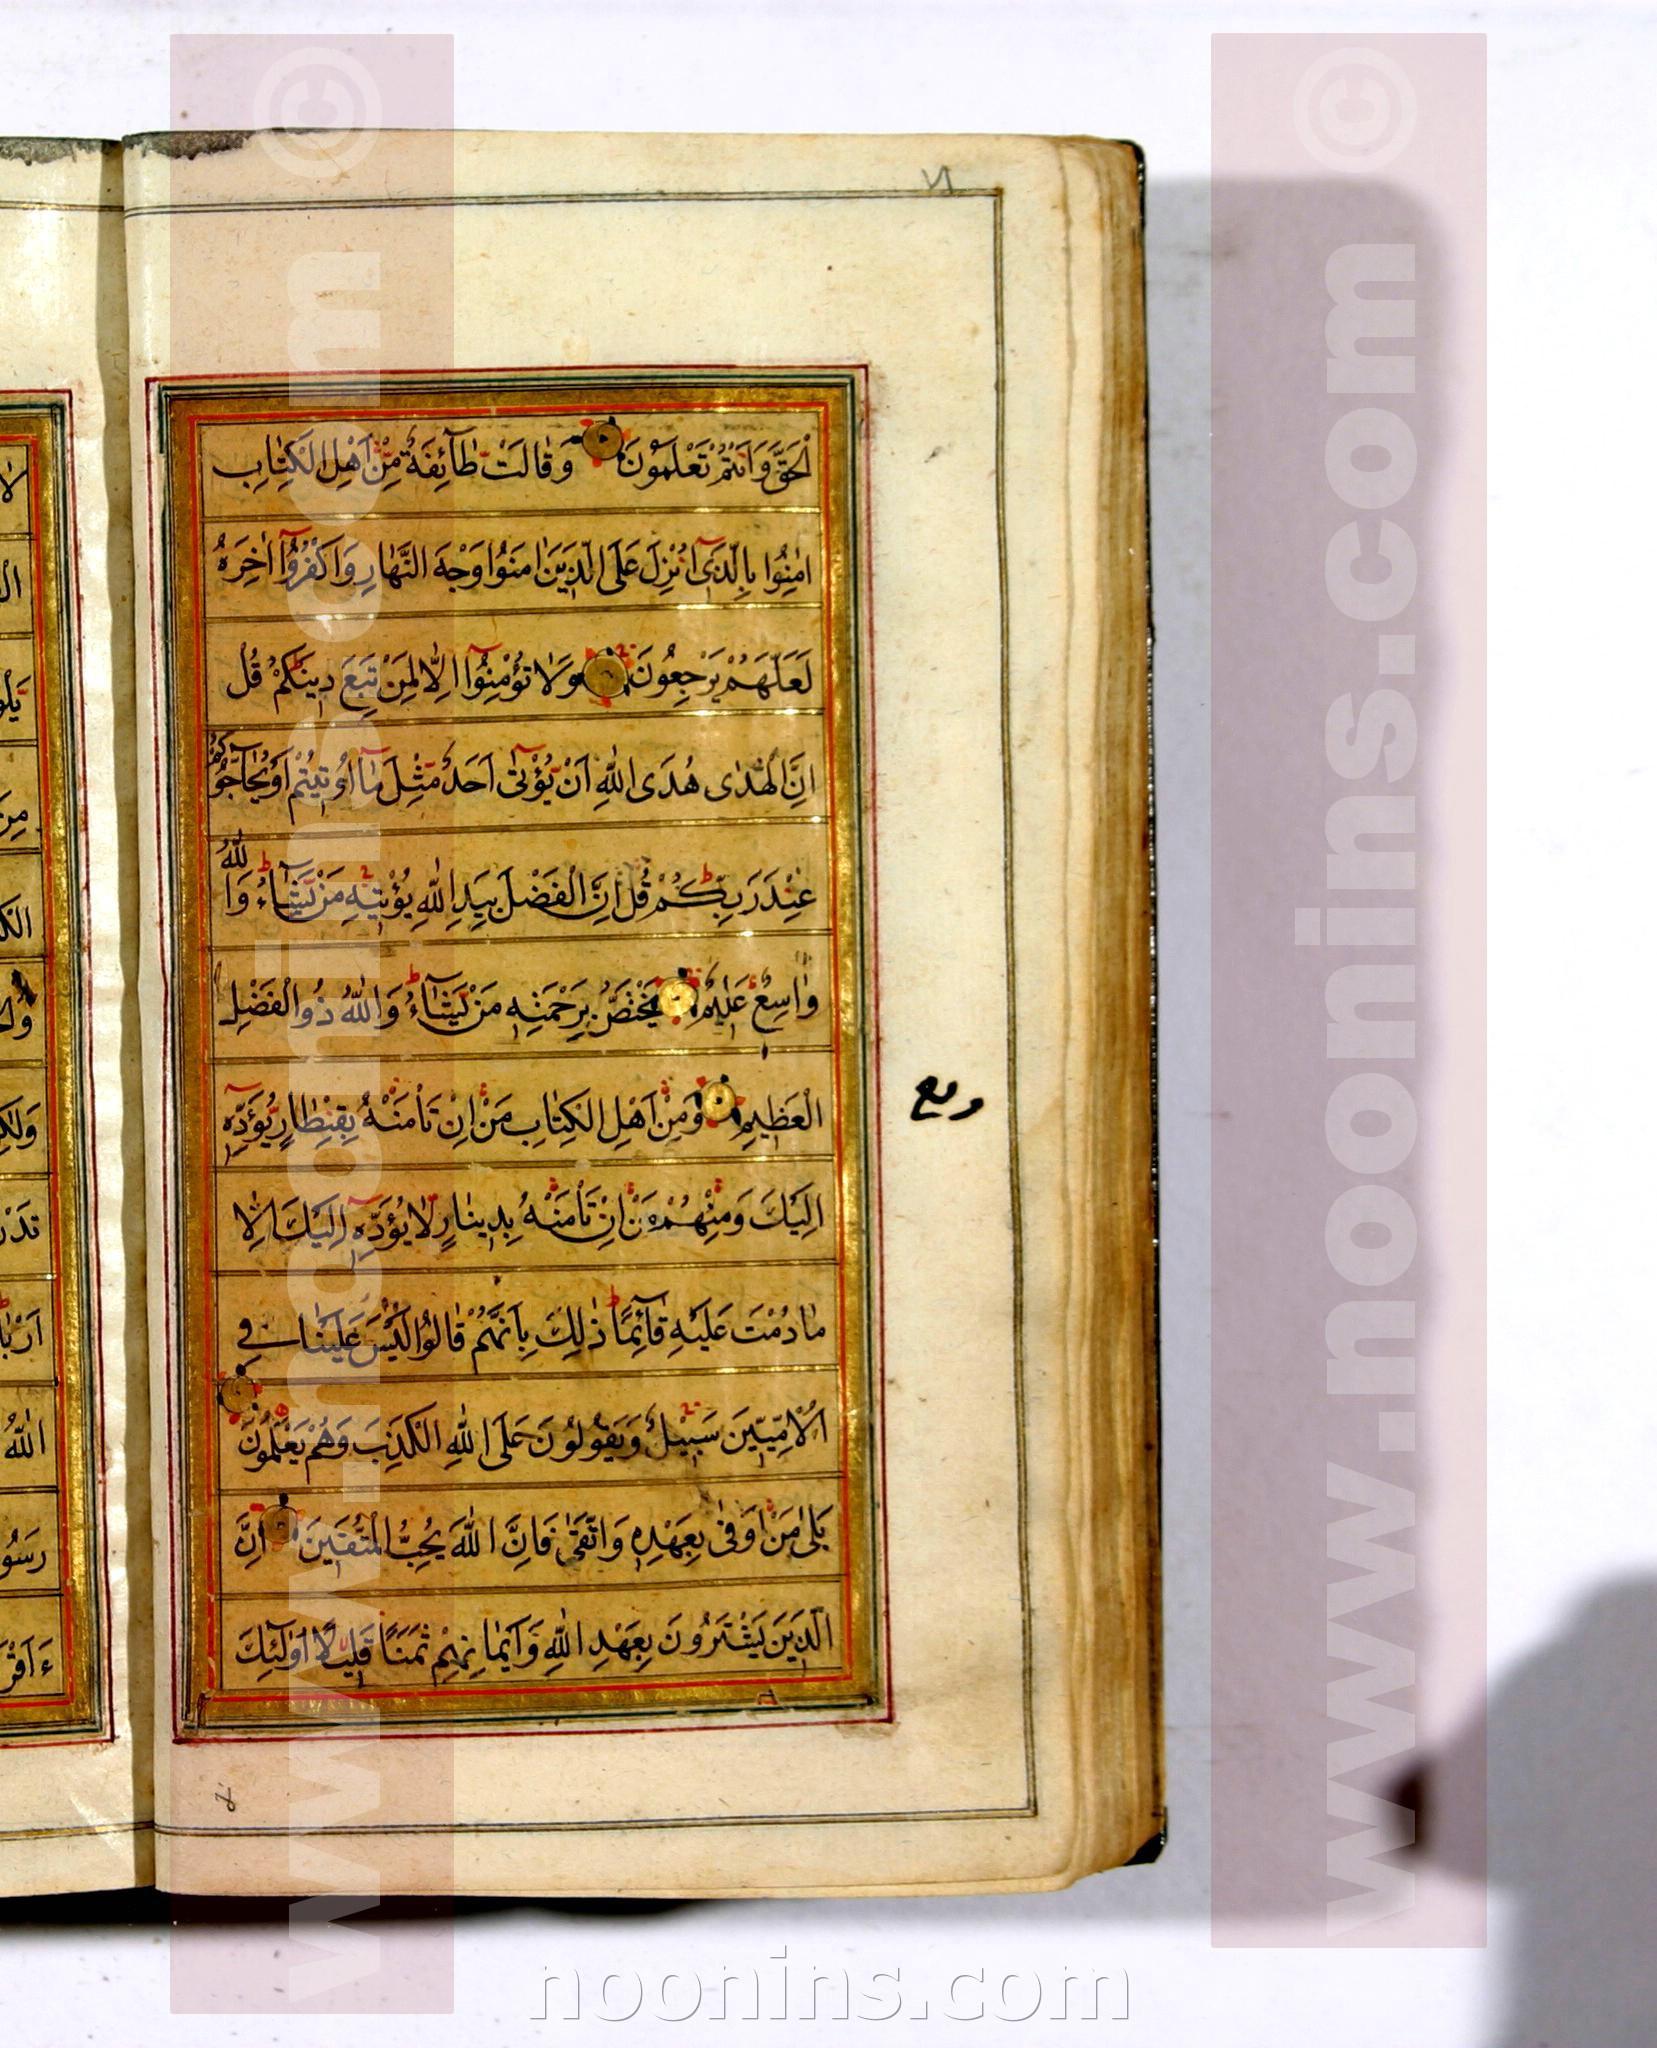 الْحَقَّ وَاَنْتُمْ تَعْلَمُونَ وَقَالَتْ طَآئِفَةٌ مِّنْ اَهْلِ الْكِتَابِ
اٰمِنُوا بِالَّذِىٓ اُنْزِلَ عَلَى الَّذِينَ اٰمَنُوا وَجْهَ النَّهَارِ وَاكْفُرُوٓا اٰخِرَهُ
لَعَلَّهُمْ يَرْجِعُونَ وَلَا تُؤْمِنُوٓا اِلَّا لِمَنْ تَبِعَ دِينَكُمْ قُلْ
اِنَّ الْهُدٰى هُدَى اللّٰهِ اَنْ يُّؤْتٰىٓ اَحَدٌ مِّثْلَ مَآ اُوتِيتُمْ اَوْ يُحَآجُّوكُمْ
عِنْدَ رَبِّكُمْ قُلْ اِنَّ الْفَضْلَ بِيَدِ اللّٰهِ يُؤْتِيهِ مَنْ يَّشَآءُ وَاللّٰهُ
وَاسِعٌ عَلِيمٌ يَخْتَصُّ بِرَحْمَتِهِ مَنْ يَّشَآءُ وَاللّٰهُ ذُو الْفَضْلِ
الْعَظِيمِ وَمِنْ اَهْلِ الْكِتَابِ مَنْ اِنْ تَأْمَنْهُ بِقِنْطَارٍ يُّؤَدِّهِٓ
ربع
اِلَيْكَ وَمِنْهُمْ مَنْ اِنْ تَأْمَنْهُ بِدِينَارٍ لَّا يُؤَدِّهِٓ اِلَيْكَ اِلَّا
مَا دُمْتَ عَلَيْهِ قَآئِمًا ذٰلِكَ بِاَنَّهُمْ قَالُوا لَيْسَ عَلَيْنَا فِى
الْاُمِّيّينَ سَبِيلٌ وَيَقُولُونَ عَلَى اللّٰهِ الْكَذِبَ وَهُمْ يَعْلَمُونَ
بَلٰى مَنْ اَوْفٰى بِعَهْدِهِ وَاتَّقٰى فَاِنَّ اللّٰهَ يُحِبُّ الْمُتَّقِينَ اِنَّ
الَّذِينَ يَشْتَرُونَ بِعَهْدِ اللّٰهِ وَاَيْمَانِهِمْ ثَمَنًا قَلِيلًا اُولٰٓئِكَ
www.noonins.com ©
www.noonins.com ©
noonins.com